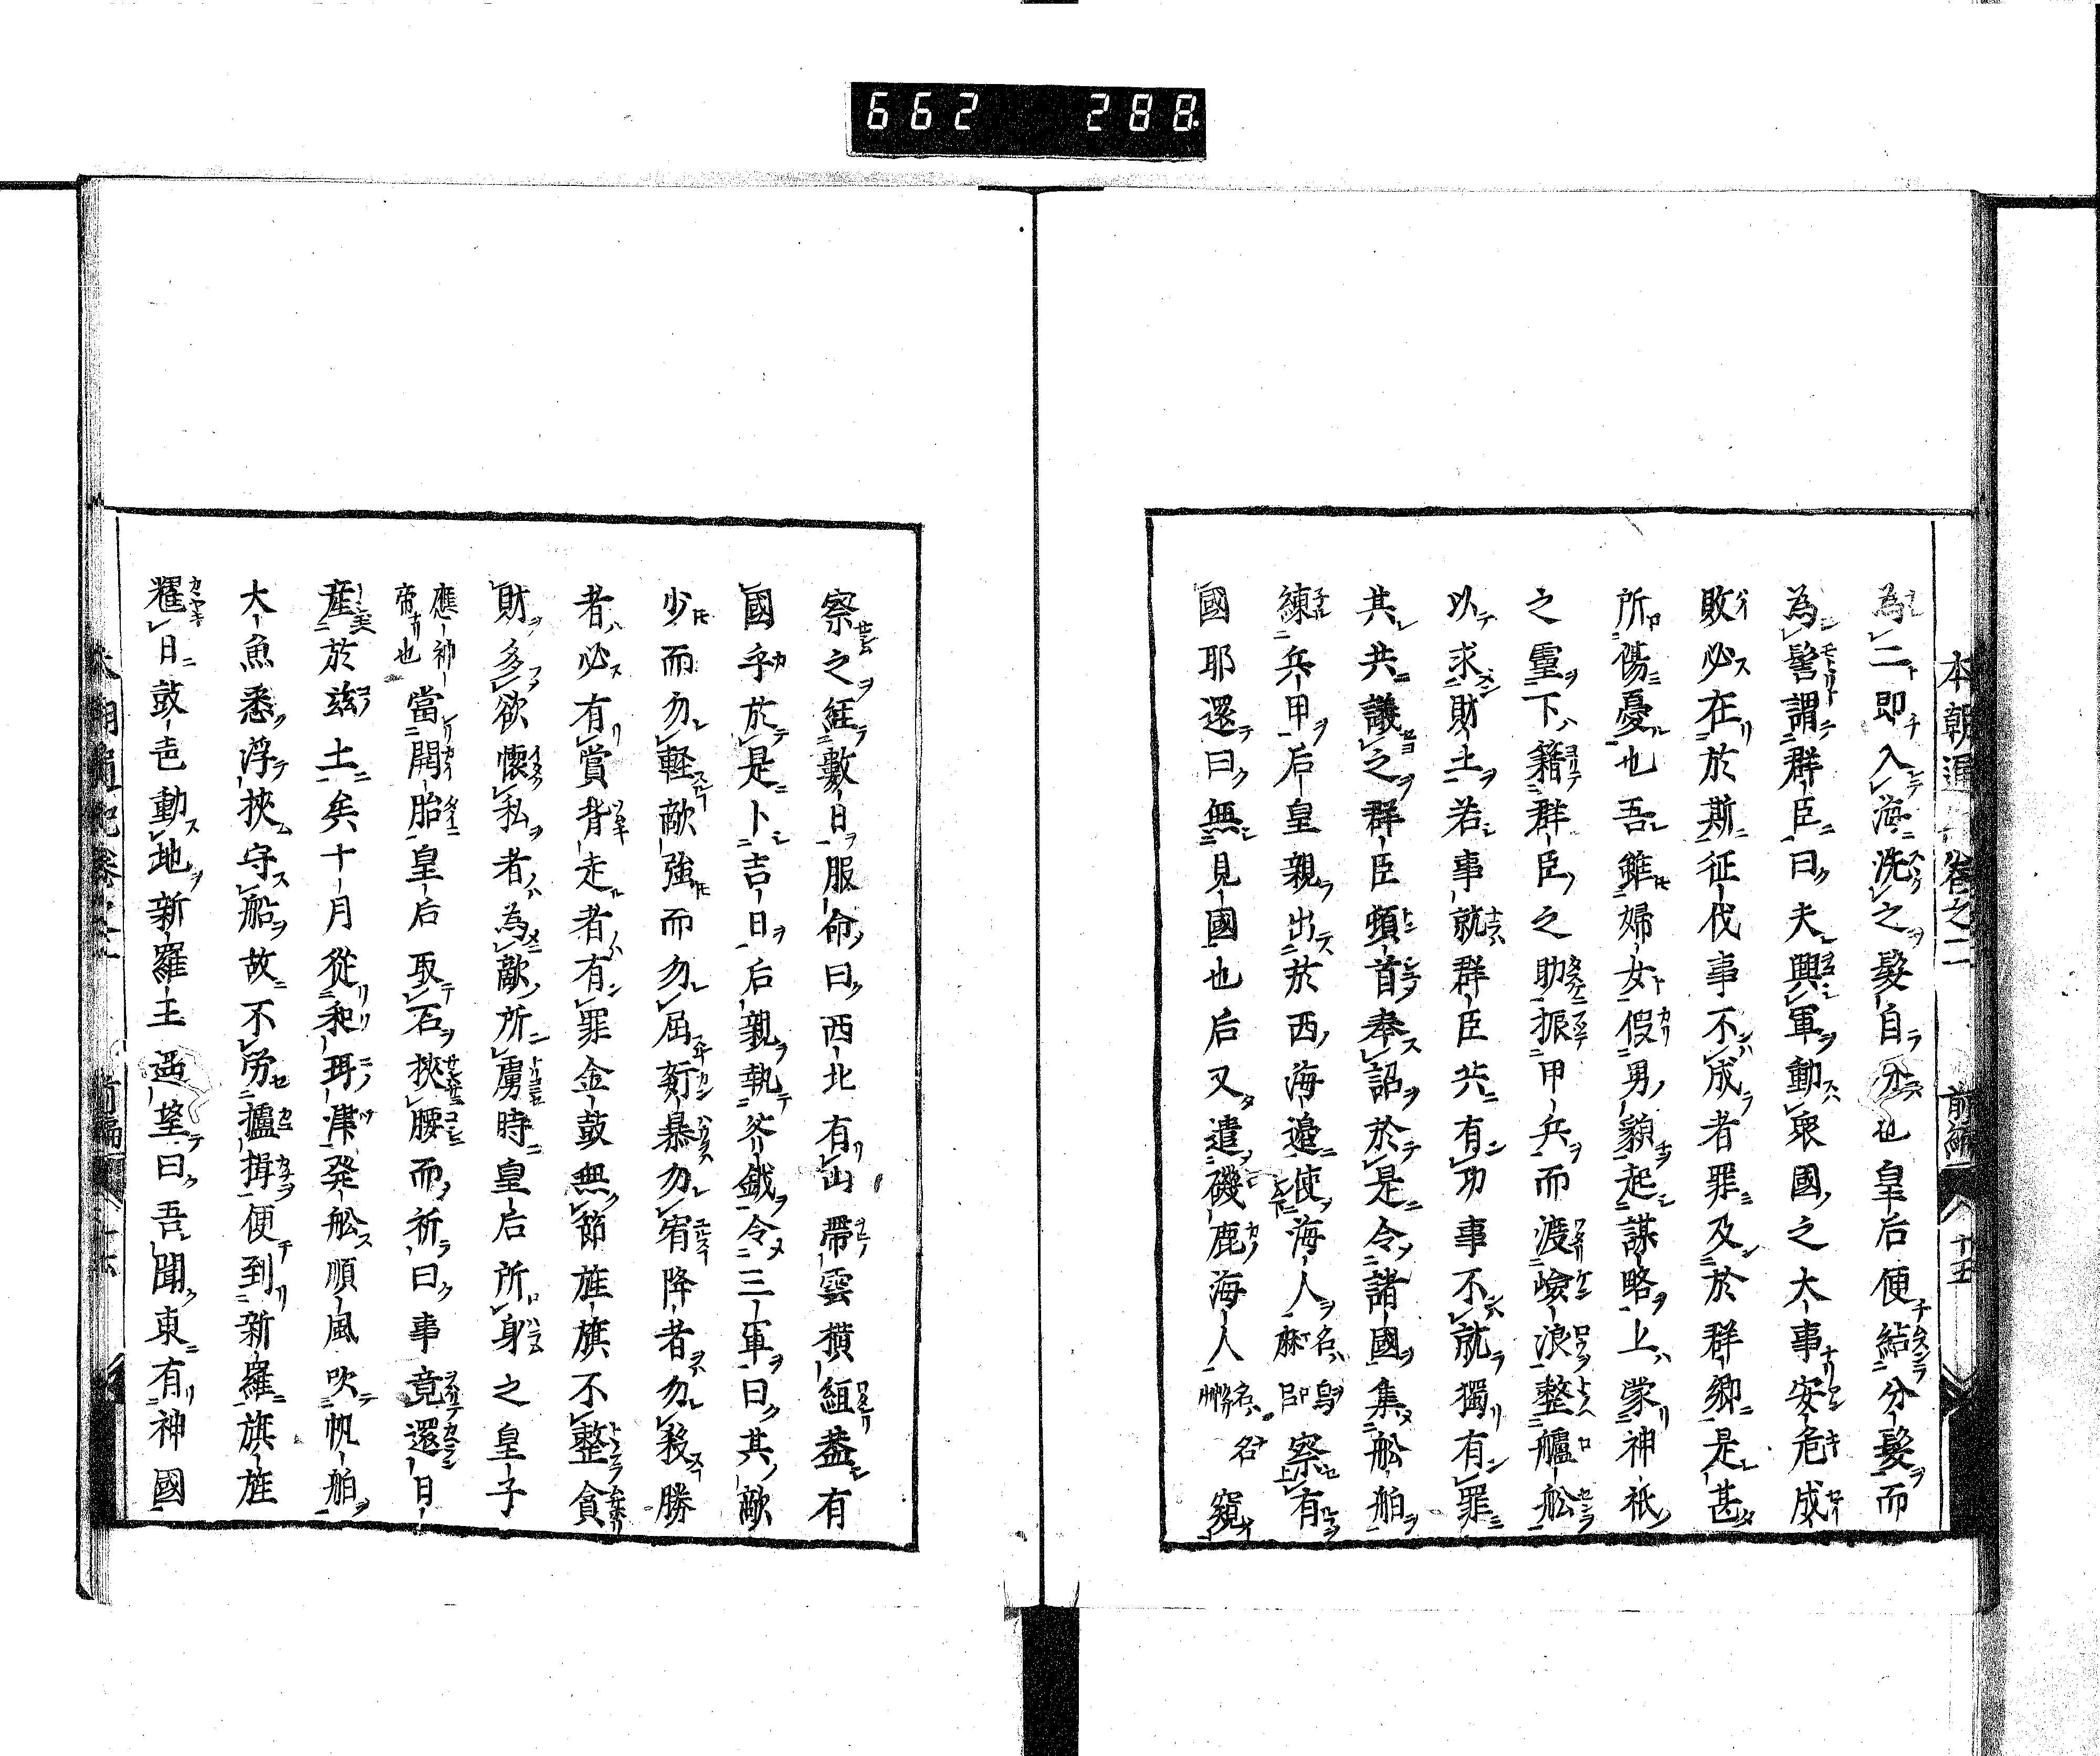 662 288
本朝通 卷之二 前編 十五
為二即入海洗之髮自分也皇后便結分髮而
為髻謂群臣曰夫興軍動衆國之大事安危成
敗必在於斯征伐事不成者罪及於群卿是甚
所傷憂也吾雖婦女假男貌起謀略上蒙神祇
之靈下籍群臣之助振甲兵而渡嶮浪整艫舩
以求財土若事就群臣共有功事不就獨有罪
其共議之群臣頓首奉詔於是令諸國集舩舶
練兵甲后皇親出於西海邉使海人名烏麻呂察有
國耶還曰無見國也后又遣磯鹿海人名 名窺
察之經數日服命曰西北有山帶雲横組蓋有
國乎於是卜吉日后親執斧鉞令三軍曰其敵
少而勿輕敵強而勿屈姧暴勿宥降者勿殺勝
者必有賞背走者有罪金鼓無節旌旗不整貪
財多欲懷私者為敵所虜時皇后所身之皇子
應神帝也當開胎皇后取石挾腰而祈曰事竟還日
産於茲土矣十月從和珥津発舩順風吹帆舶
大魚悉浮挾守船故不労櫨揖便到新羅旗旌
耀日鼓聲動地新羅王遥望曰吾聞東有神國
本朝通紀卷之二 前編 十六